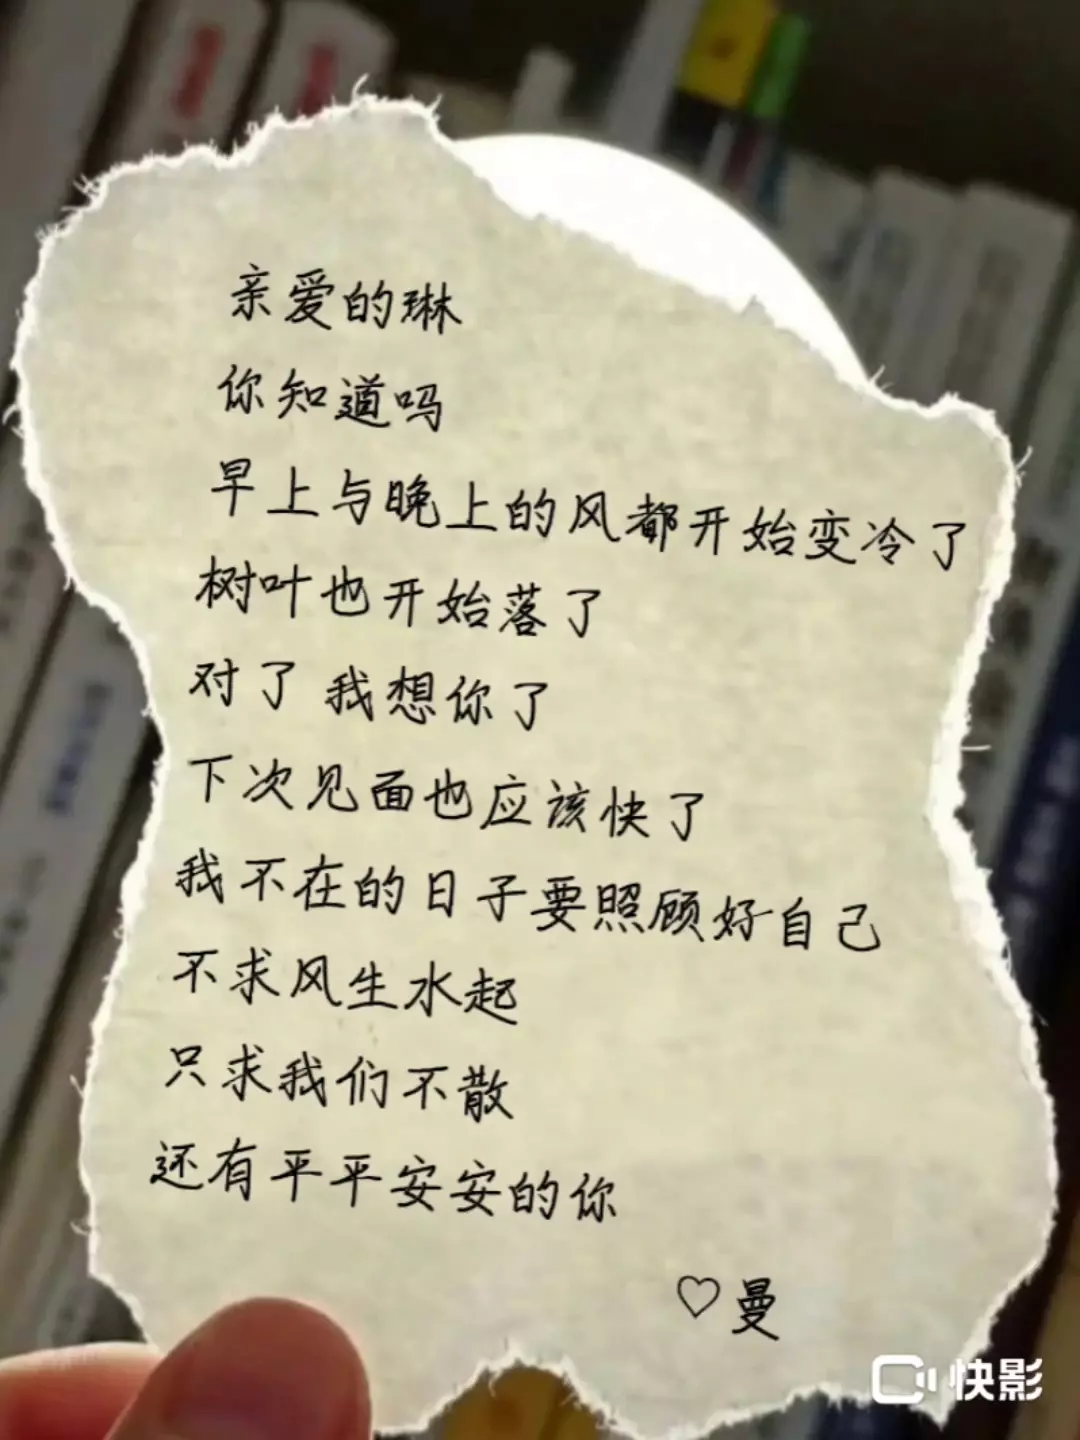 亲爱的琳
你知道吗
早上与晚上的风都开始变冷了
树叶也开始落了
对了 我想你了
下次见面也应该快了
我不在的日子要照顾好自己
不求风生水起
只求我们不散
还有平平安安的你
♡曼
快影